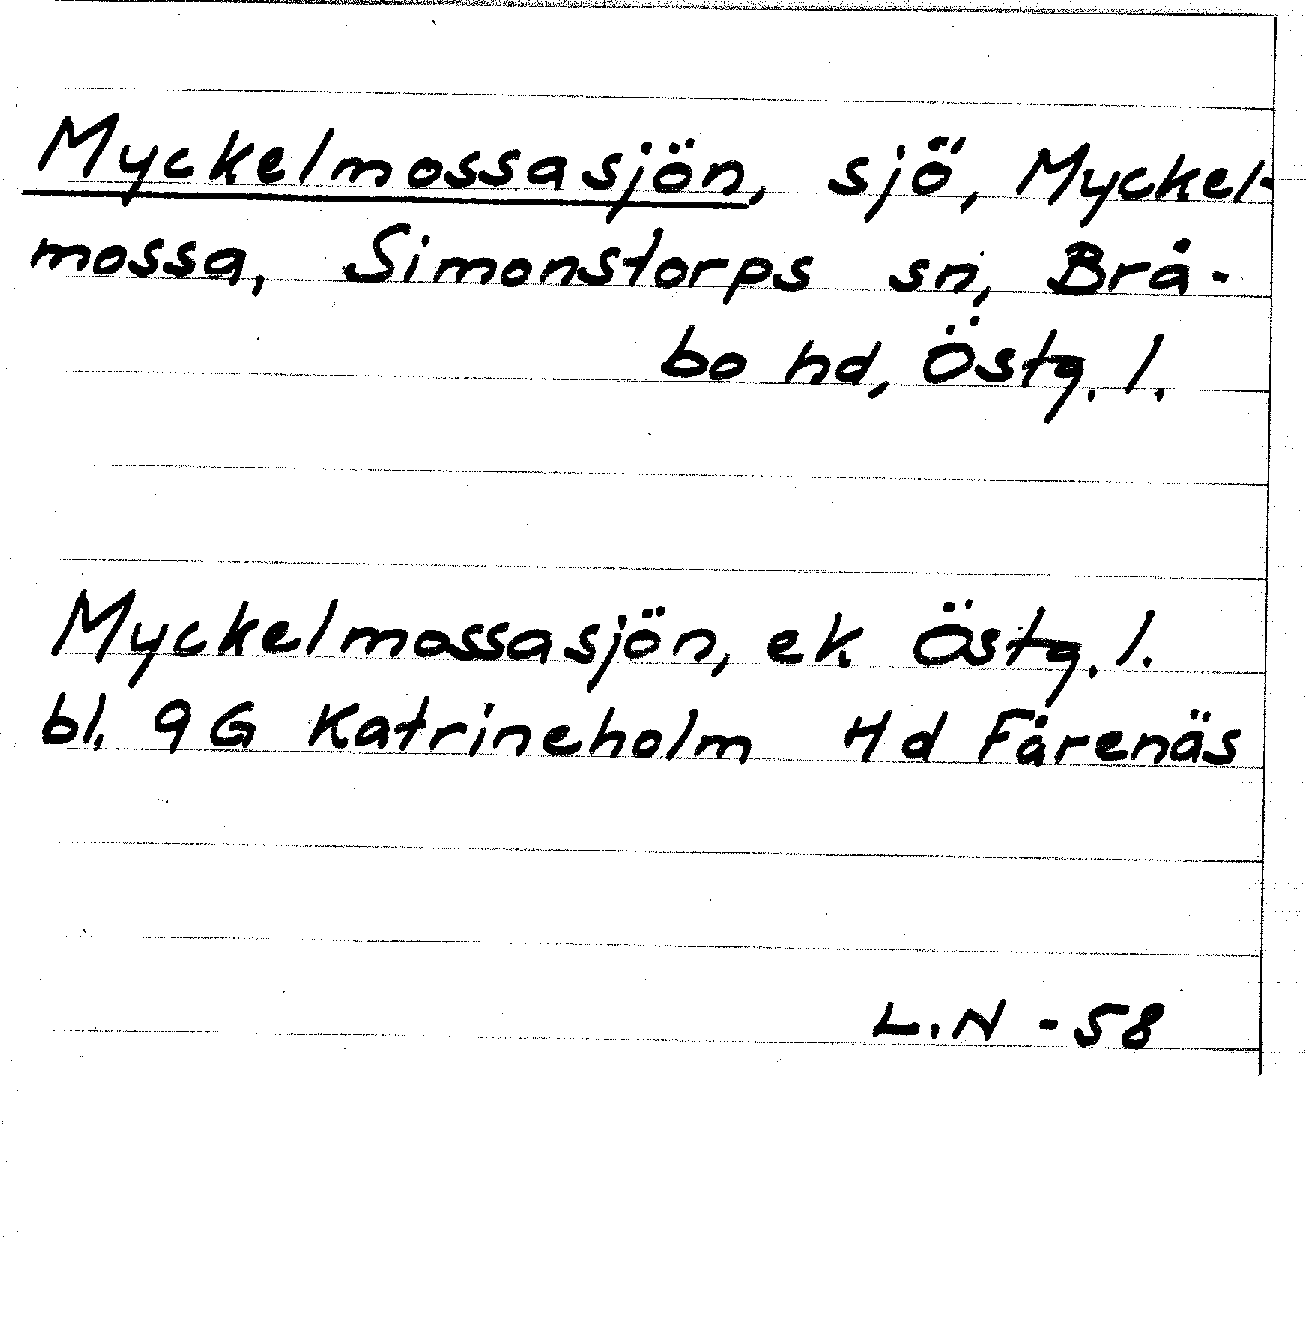 Myckelmossasjön, sjö, Myckel-
mossa, Simonstorps sn, Brå-
bo hd, Östg. l.
Myckelmossasjön, ek Östg. l.
bl. 9G Katrineholm 4d Fårenäs
L.N - 58